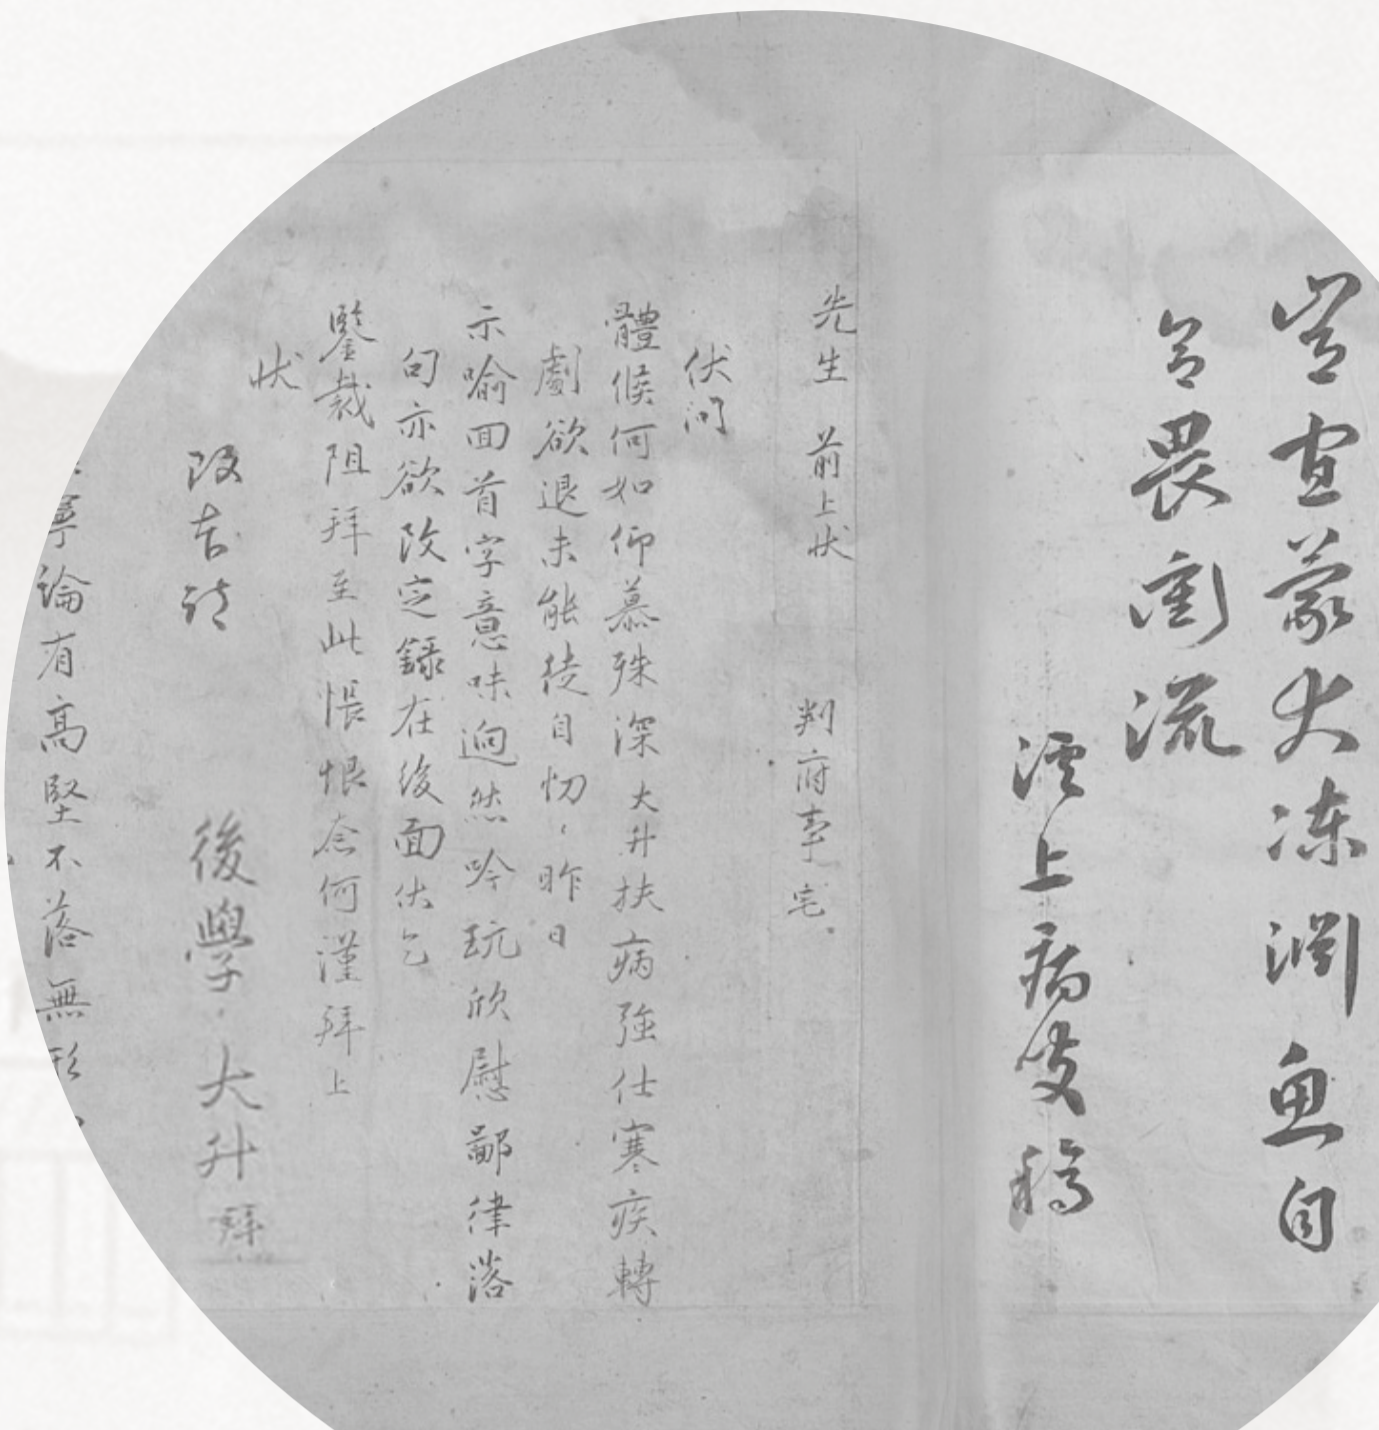 宜蒙大凍淵魚自
畏衝流
溪上病叟稿
先生 前上狀 判府事宅
伏問
體候何如仰慕殊深大升扶病強仕寒疾轉
劇欲退未能徒自忉〻昨日
示喻回首字意味逈然吟玩欣慰鄙律落
句亦欲改定錄在後面伏乞
鑒裁阻拜至此悵恨奈何謹拜上
狀
後學 大升 拜
寧論有高堅不落無形